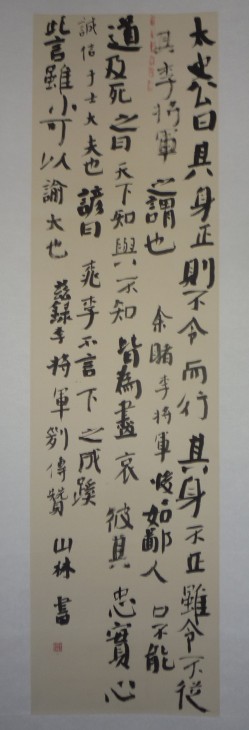 太史公曰其身正則不令而行其身不正雖令不從
其李將軍之謂也余睹李將軍悛悛如鄙人口不能
道及死之日天下知與不知皆為盡哀彼其忠實心
誠信于士大夫也諺曰桃李不言下之成蹊
此言雖小可以諭大也茲錄李將軍列傳贊山林書